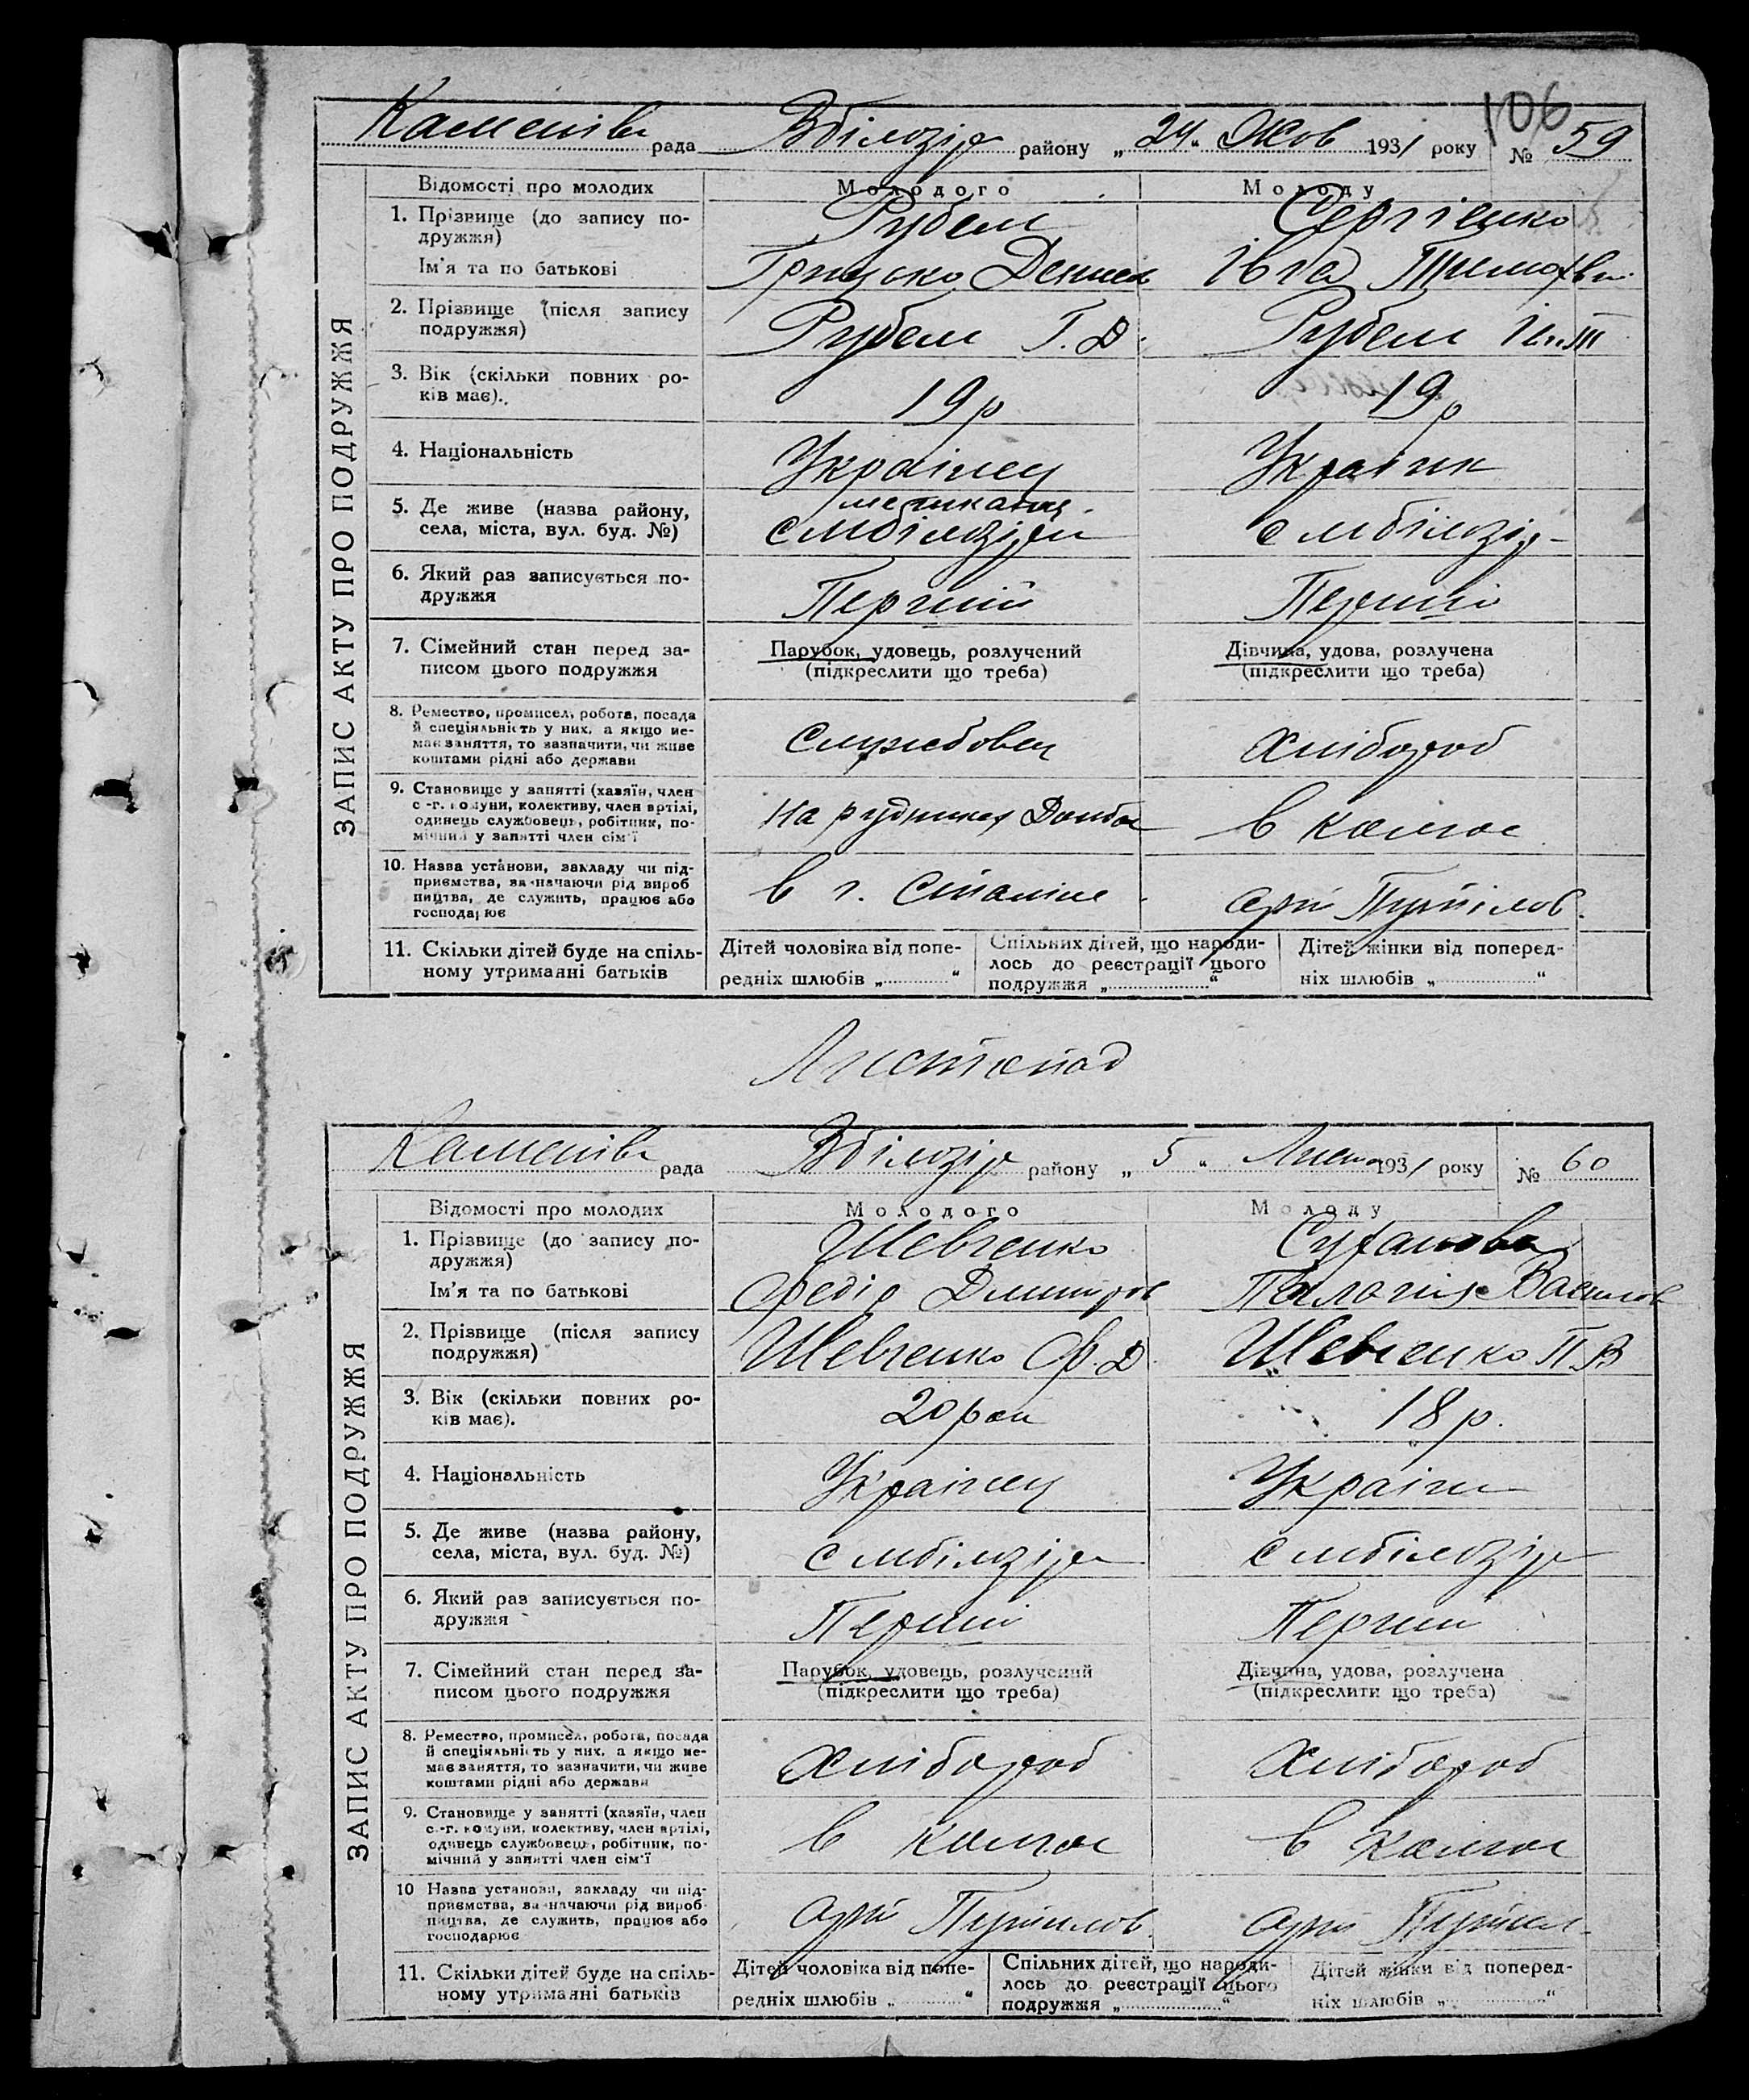 106
Каменів рада Вбілозір району „24“ Жов 1931 року № 59
ЗАПИС АКТУ ПРО ПОДРУЖЖЯ
Відомості про молодих Молодого Молоду
1. Прізвище (до запису по-
дружжя) Рубен Сергієнко
Ім'я та по батькові Грицько Денисов Івга Тимофів
2. Прізвище (після запису
подружжя) Рубен Г. Д. Рубен
3. Вік (скільки повних ро-
ків має). 19 р 19 р
4. Національність Українец Українк
мешканец
5. Де живе (назва району,
села, міста, вул. буд. №) с мбілозіри с мбілозір
6. Який раз записується по-
дружжя Перший Перший
7. Сімейний стан перед за-
писом цього подружжя
Парубок, удовець, розлучений
(підкреслити що треба)
Дівчина, удова, розлучена
(підкреслити що треба)
8. Ремество, промисел, робота, посада
й спеціяльність у них, а якщо не-
має заняття, то зазначити, чи живе
коштами рідні або держави
Службовец Хлібороб
9. Становище у занятті (хазяїн, член
с.-г. комуни, колективу, член артілі,
одинець службовець, робітник, по-
мічний у занятті член сім'ї
на рудниках Донбас в колгос
10. Назва установи, закладу чи під-
приємства, зазначаючи рід вироб
ництва, де служить, працює або
господарює
в г. Сталіне арт Путілов
11. Скільки дітей буде на спіль-
ному утриманні батьків
Дітей чоловіка від попе-
редніх шлюбів „ “
Спільних дітей, що народи-
лось до реєстрації цього
подружжя „ “
Дітей жінки від поперед-
ніх шлюбів „ “
Листопад
Каменів рада Вбілозір району „5“ Листо 1931 року № 60
ЗАПИС АКТУ ПРО ПОДРУЖЖЯ
Відомості про молодих Молодого Молоду
1. Прізвище (до запису по-
дружжя) Шевченко Суханова
Ім'я та по батькові Федір Дмитров Палагія Василов
2. Прізвище (після запису
подружжя) Шевченко Ф. Д. Шевченко П. В
3. Вік (скільки повних ро-
ків має). 20 рок 18 р.
4. Національність Українец Україн
5. Де живе (назва району,
села, міста, вул. буд. №) с мбілозіри с мбілозір
6. Який раз записується по-
дружжя Перший Перший
7. Сімейний стан перед за-
писом цього подружжя
Парубок, удовець, розлучений
(підкреслити що треба)
Дівчина, удова, розлучена
(підкреслити що треба)
8. Ремество, промисел, робота, посада
й спеціяльність у них, а якщо не-
має заняття, то зазначити, чи живе
коштами рідні або держави
Хлібороб Хлібороб
9. Становище у занятті (хазяїн, член
с.-г. комуни, колективу, член артілі,
одинець службовець, робітник, по-
мічний у занятті член сім'ї
в колгос в колгос
10 Назва установи, закладу чи під-
приємства, зазначаючи рід вироб-
ництва, де служить, працює або
господарює
арт Путилов арт Путил
11. Скільки дітей буде на спіль-
ному утриманні батьків
Дітей чоловіка від попе-
редніх шлюбів „ “
Спільних дітей, що народи-
лось до реєстрації цього
подружжя „ “
Дітей жінки від поперед-
ніх шлюбів „ “